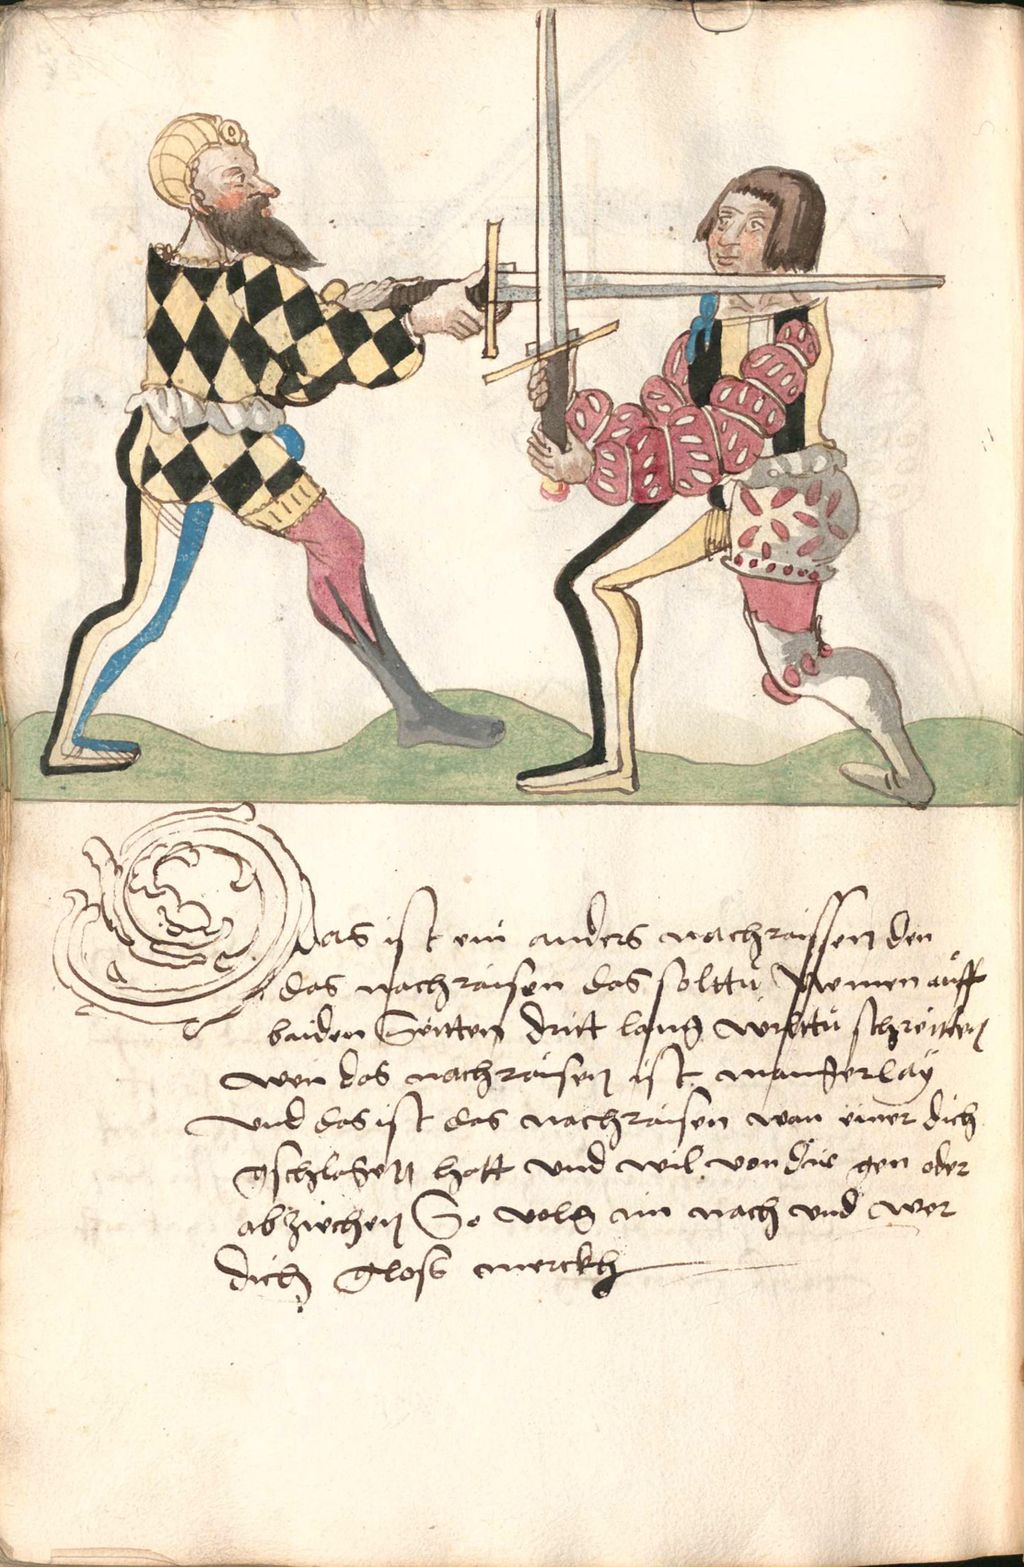 Das ist ein anders nachraissen den
das nachraisen das solttu Vremen auff
baiden Seitten dritt lang wilttu schreitten
wen das nachraisen ist manigerlay
vnd das ist das nachraisen wan einer dich
gschlagen hatt vnd wil von dir gen oder
abziechen So volg im nach vnd wer
dich glosß merckh